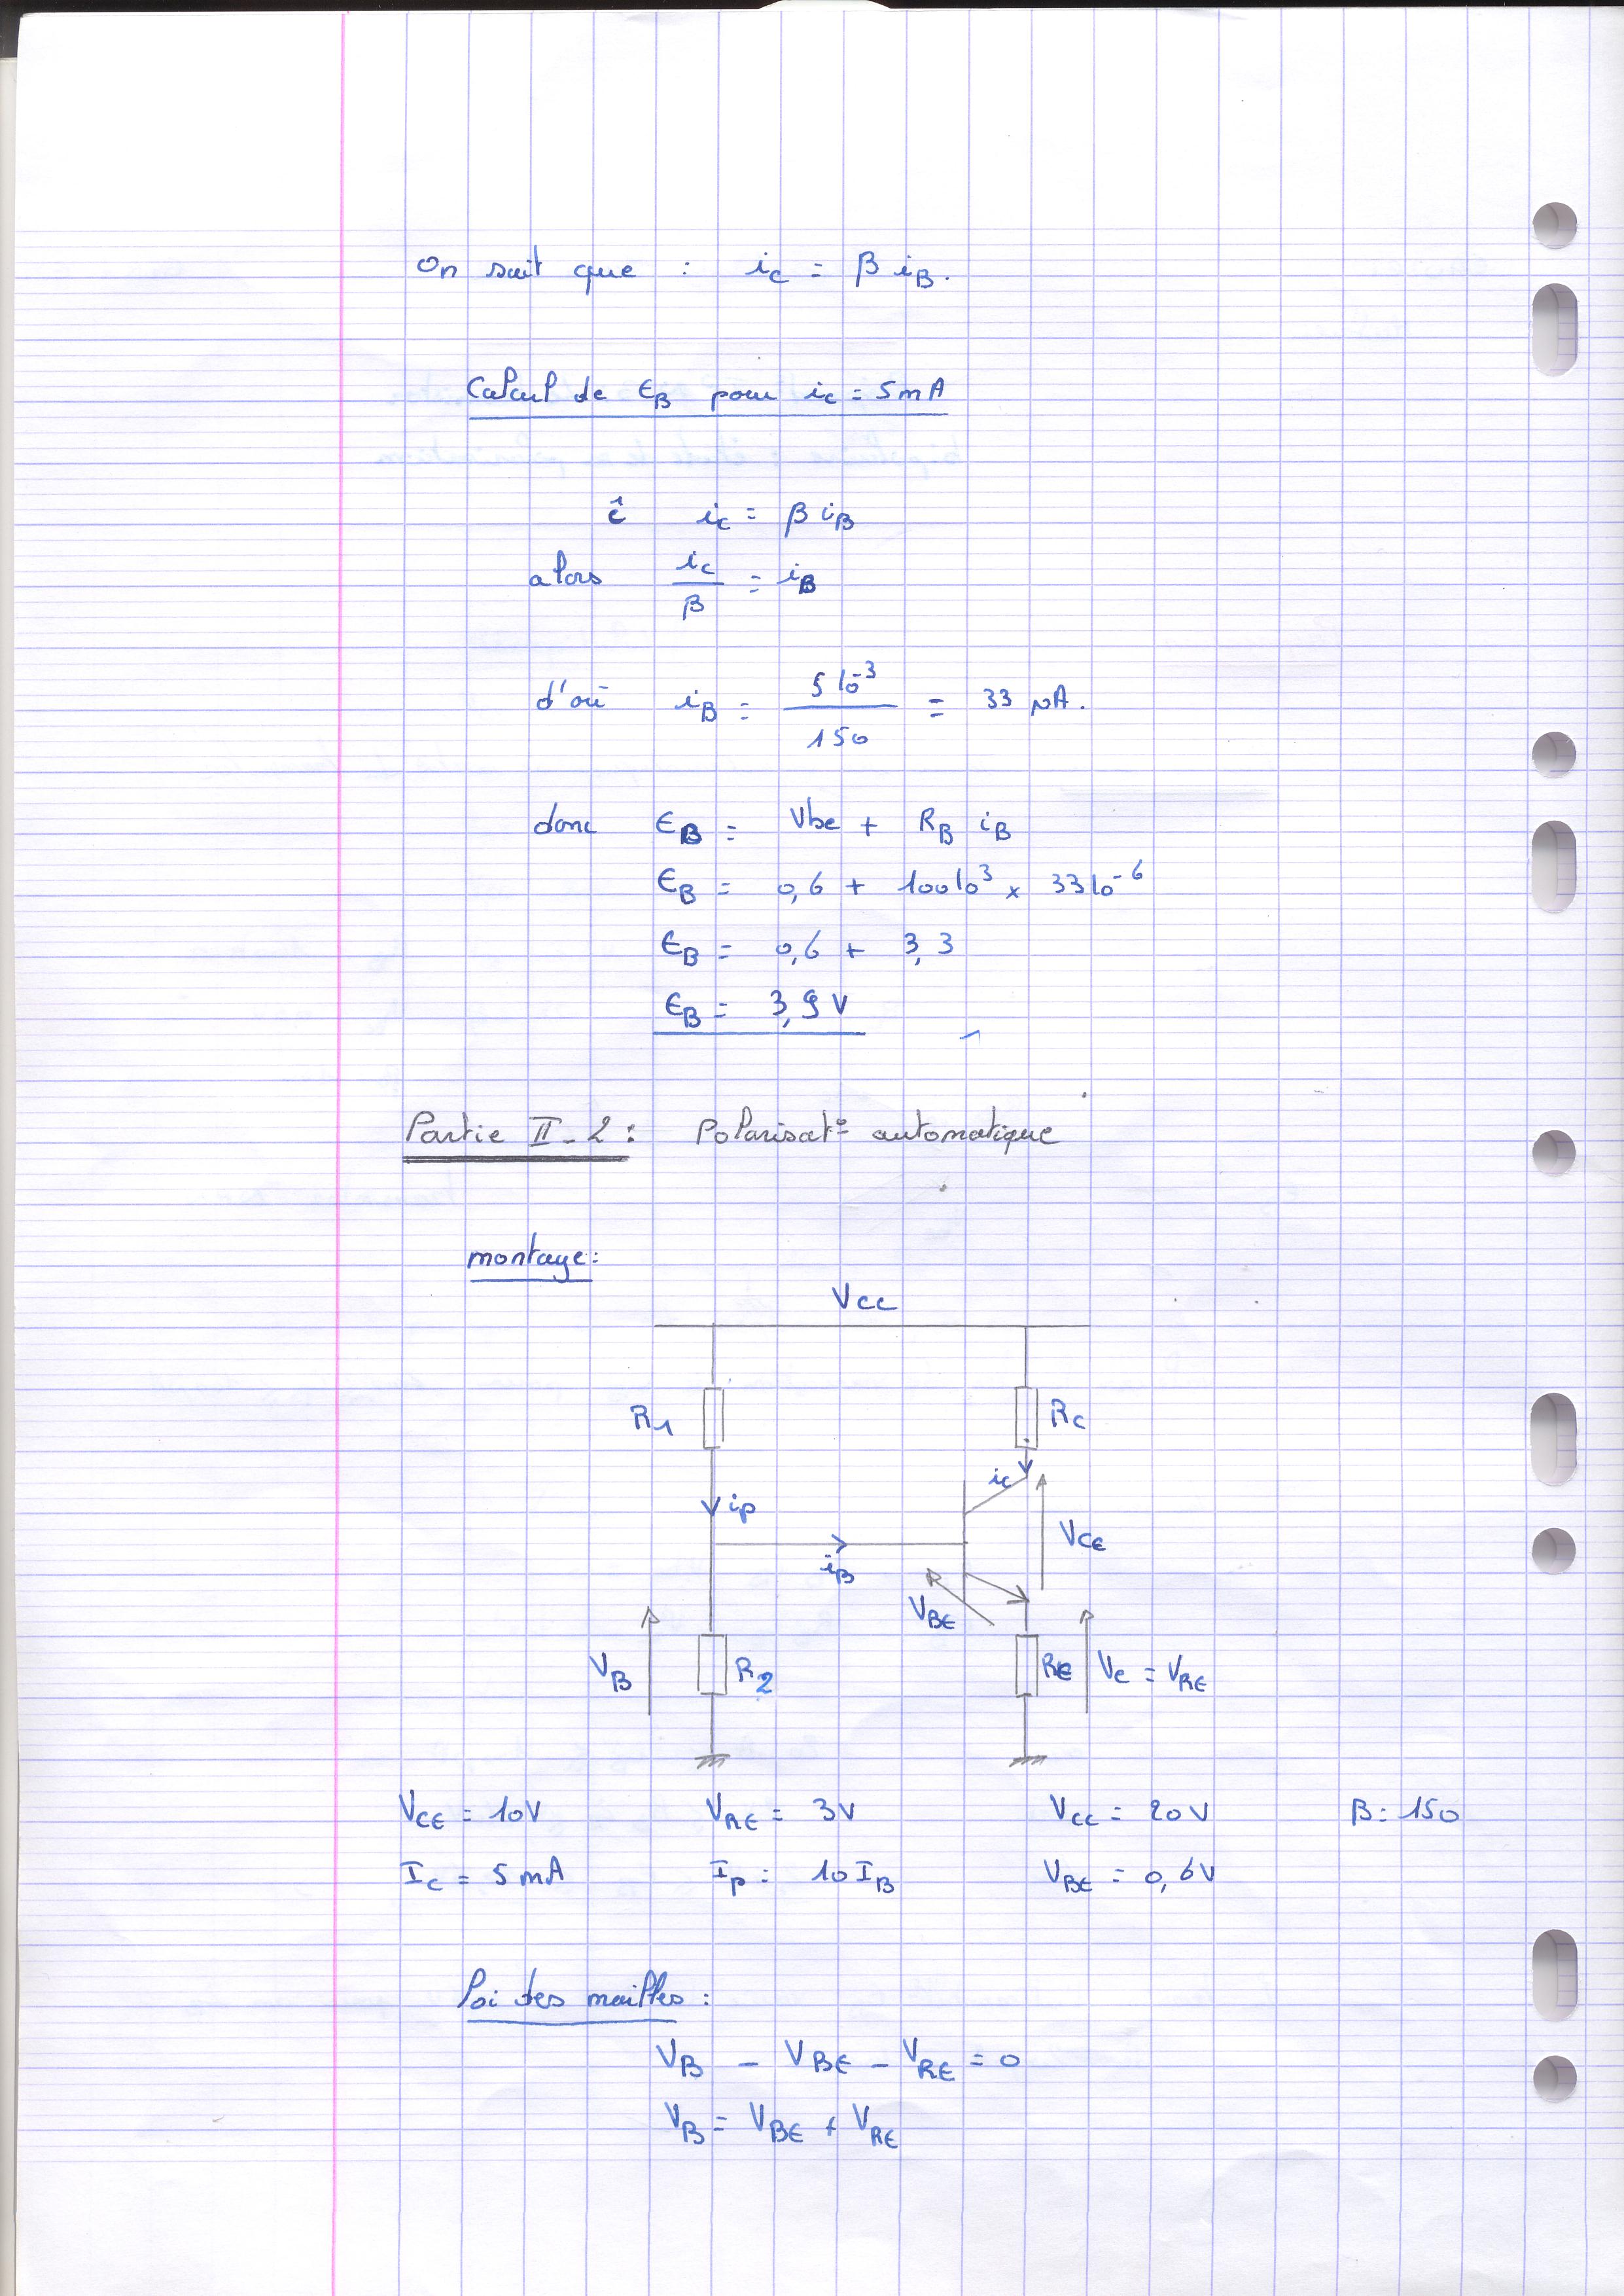 On sait que : ic = β iB.
Calcul de EB pour ic = 5mA
ĉ ic = β iB
alors ic/β = iB
d'où iB = 5 10⁻³/150 = 33 µA.
donc EB = Vbe + RB iB
EB = 0,6 + 100 10³ × 33 10⁻⁶
EB = 0,6 + 3,3
EB = 3,9 V
Partie II-2 : Polarisat° automatique
montage :
Vcc
R1 Rc
ic
ip
VCE
iB
VBE
VB R2 RE Ve = VRE
VCE = 10V VRE = 3V Vcc = 20V B = 150
Ic = 5mA Ip = 10 IB VBE = 0,6V
loi des mailles :
VB - VBE - VRE = 0
VB = VBE + VRE